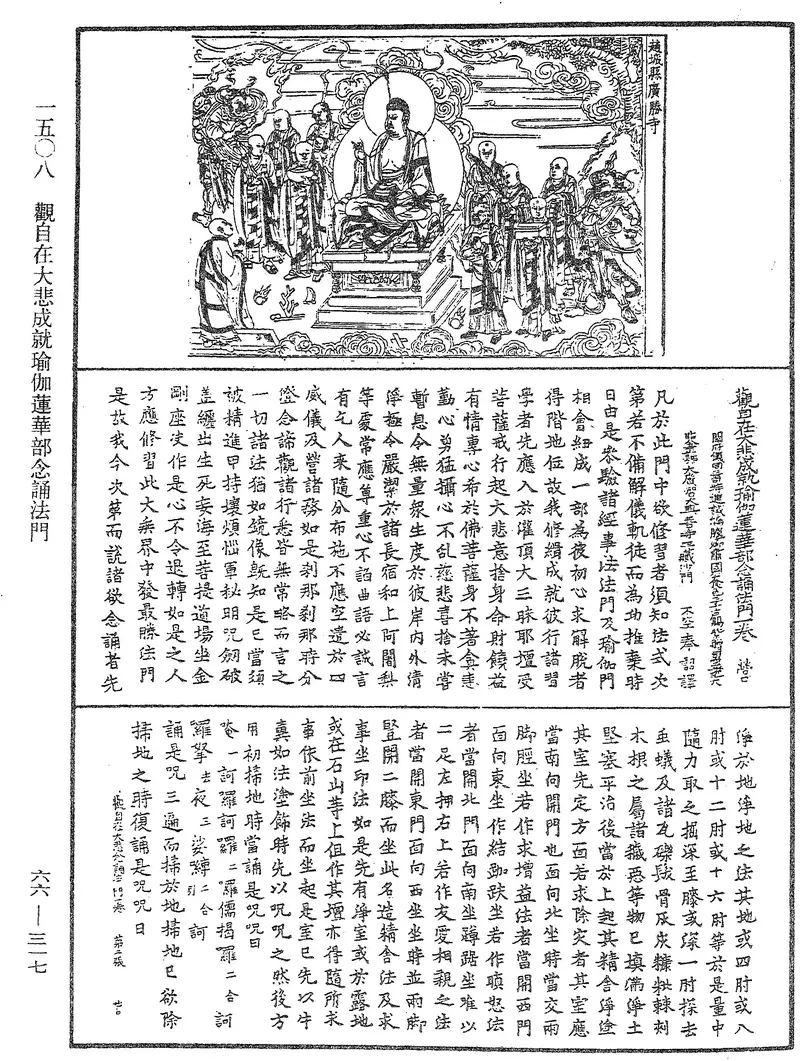 趙城縣廣勝寺
一五〇八　觀自在大悲成就瑜伽蓮華部念誦法門
觀自在大悲成就瑜伽蓮華部念誦法門一卷　營口
開府儀同三司特進試鴻臚卿肅國公食邑三千戶
大興善寺三藏沙門　不空奉　詔譯
凡於此門中欲修習者須知法式次
第若不備解儀軌徒而為功推棄時
日由是參驗諸經事法法門及瑜伽門
相會紐成一部為彼初心求解脫者
得階地位故我修纘成就彼行諸習
學者先應入於灌頂大三昧耶壇受
菩薩戒行起大悲意捨身命財饒益
有情專心希於佛菩薩身不著貪恚
勤心勇猛攝心不乱慈悲喜捨未嘗
暫息令無量衆生度於彼岸內外清
淨極令嚴潔於諸長宿和上阿闍梨
等處常應尊重心不諂曲語必誠言
有乞人來隨分布施不應空遣於四
威儀及營諸務如是刹那刹那時分
證念諦觀諸行悉皆無常略而言之
一切諸法猶如鏡像旣知是已當須
被精進甲持壤煩惱軍秘明咒劒破
盖纏出生死妄海至菩提道場坐金
剛座史作是心不令退轉如是之人
方應修習此大無界中發最勝法門
是故我今次第而說諸欲念誦者先
淨於地淨地之法其地或四肘或八
肘或十二肘或十六肘等於是量中
隨力取之掘深至膝或深一肘探去
虫蟻及諸瓦礫骸骨及炭糠粃棘刺
木根之屬諸穢惡等物已填滿淨土
堅塞平治後當於上起其精舍淨塗
其室先定方面若求除灾者其室應
當南向開門也面向北坐時當交兩
脚脛坐若作求增益法者當開西門
面向東坐作結跏趺坐若作瞋怒法
者當開北門面向南坐蹲踞坐唯以
二足左押右上若作友愛相親之法
者當開東門面向西坐坐時並兩脚
豎開二膝而坐此名造精舍法及求
事坐印法如是先有淨室或於露地
或在石山等上但作其壇亦得隨所求
事依前坐法而坐起是室已先以牛
糞如法塗飾時先以咒咒之然後方
用初掃地時當誦是咒咒曰
唵一訶羅訶羅二囉儒揭囉二合訶
羅拏去夜三娑縛二合引訶
誦是咒三遍而掃於地掃地已欲除
掃地之時復誦是咒咒曰
觀自在大悲念誦法門一卷　第二張　營口
六六—三一七